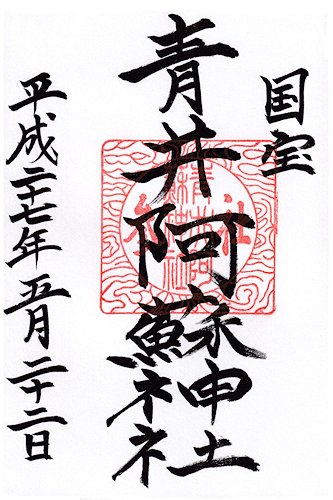 国宝
青井阿蘇神社
平成二十七年五月二十二日